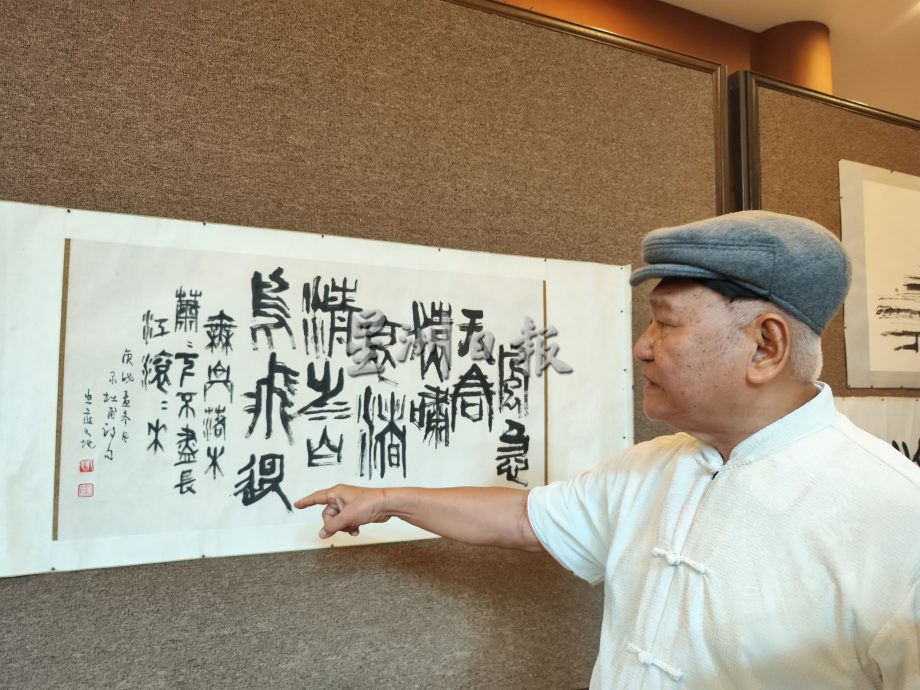 風急
天高
猿嘯
哀渚
清沙白
鳥飛迴
無邊落木
蕭〻下不盡長
江滾〻來
杜甫詩句
星洲日報